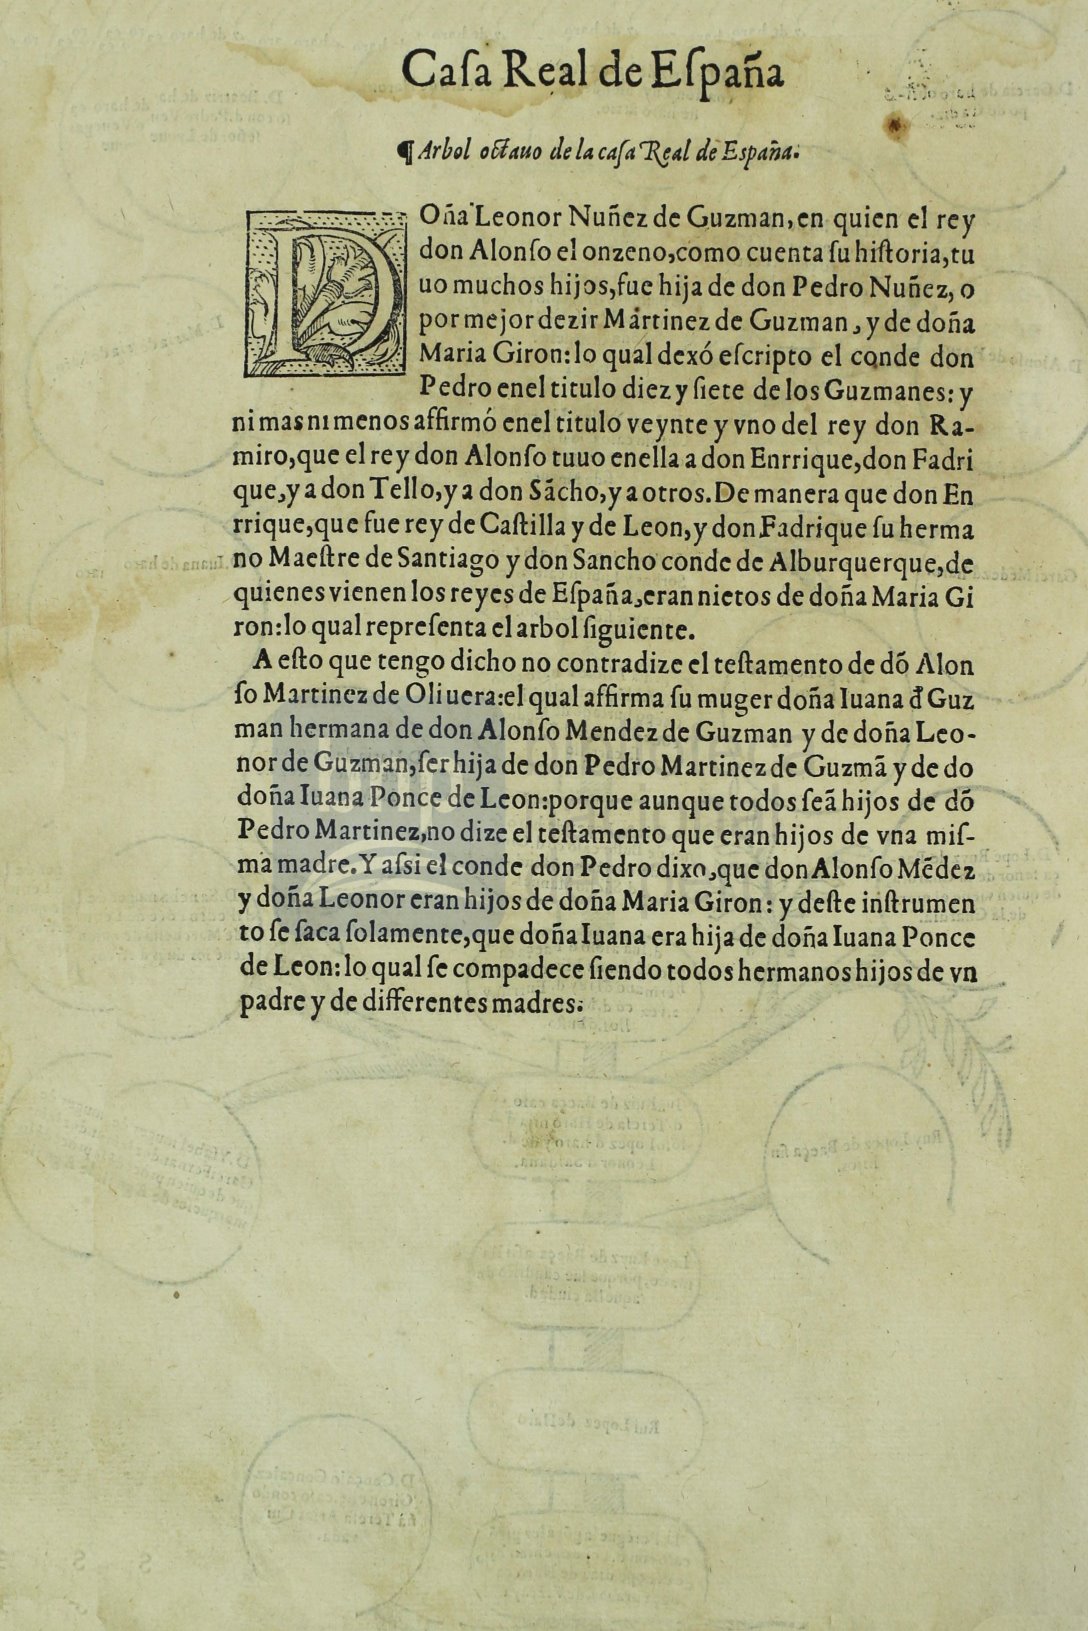 Caſa Real de Eſpaña
¶ Arbol octauo de la caſa Real de Eſpaña.
DOña Leonor Nuñez de Guzman, en quien el rey
don Alonſo el onzeno, como cuenta ſu hiſtoria, tu
uo muchos hijos, fue hija de don Pedro Nuñez, o
por mejor dezir Martinez de Guzman, y de doña
Maria Giron: lo qual dexó eſcripto el conde don
Pedro enel titulo diez y ſiete de los Guzmanes: y
ni mas ni menos affirmó enel titulo veynte y vno del rey don Ra-
miro, que el rey don Alonſo tuuo enella a don Enrrique, don Fadri
que, y a don Tello, y a don Sãcho, y a otros. De manera que don En
rrique, que fue rey de Caſtilla y de Leon, y don Fadrique ſu herma
no Maeſtre de Santiago y don Sancho conde de Alburquerque, de
quienes vienen los reyes de Eſpaña, eran nietos de doña Maria Gi
ron: lo qual repreſenta el arbol ſiguiente.
A eſto que tengo dicho no contradize el teſtamento de dõ Alon
ſo Martinez de Oliuera: el qual affirma ſu muger doña Iuana đ Guz
man hermana de don Alonſo Mendez de Guzman y de doña Leo-
nor de Guzman, ſer hija de don Pedro Martinez de Guzmã y de do
doña Iuana Ponce de Leon: porque aunque todos ſeã hijos de dõ
Pedro Martinez, no dize el teſtamento que eran hijos de vna miſ-
ma madre. Y aſsi el conde don Pedro dixo, que don Alonſo Mẽdez
y doña Leonor eran hijos de doña Maria Giron: y deſte inſtrumen
to ſe ſaca ſolamente, que doña Iuana era hija de doña Iuana Ponce
de Leon: lo qual ſe compadece ſiendo todos hermanos hijos de vn
padre y de differentes madres.